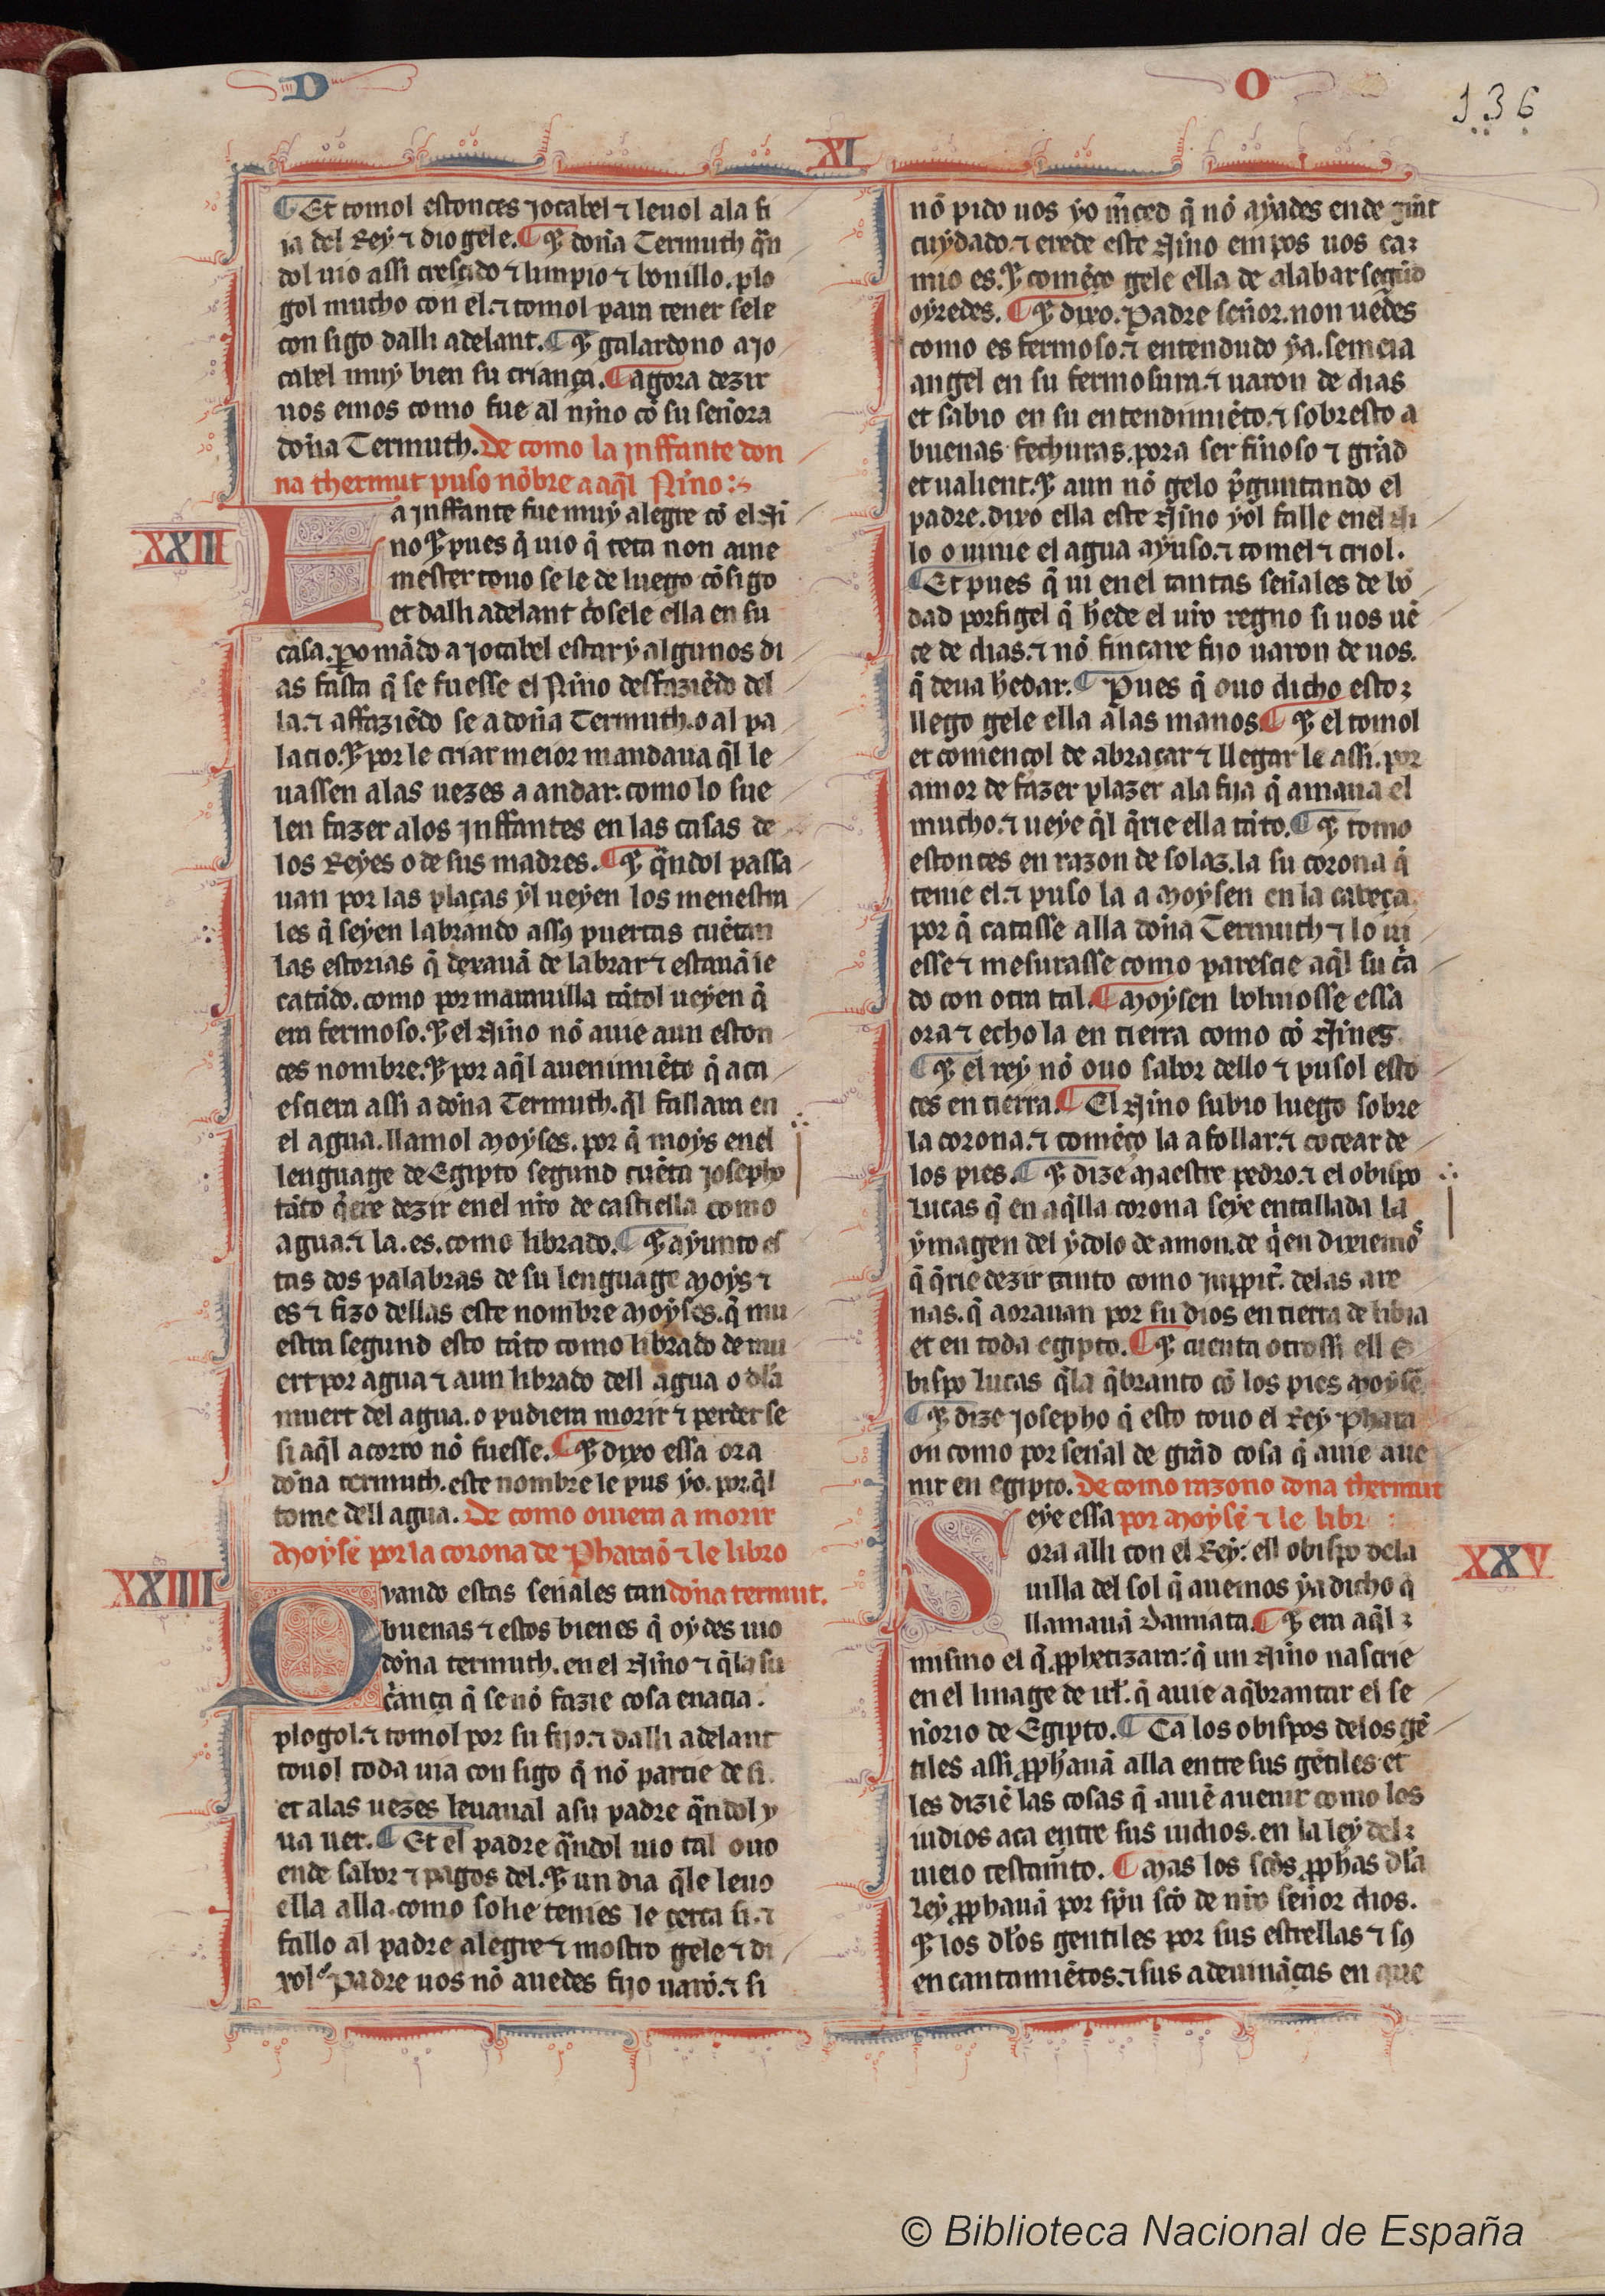 D O
136
XI
Et tomol estonces jocabel ⁊ leuol ala fi
ia del Rey ⁊ dio gele. ¶ ⁊ doña Termuth q̃n
dol uio assi cresçido ⁊ limpio ⁊ bonillo. plo
gol mucho con el. ⁊ tomol para tener sele
con sigo dalli adelant. ¶ ⁊ galardono a jo
cabel muy bien su criança. ¶ agora dezir
uos emos como fue al niño cõ su señora
doña Termuth. De como la jnffante don
na thermut puso nõbre a aq̃l Niño:~
XXIII
La jnffante fue muy alegre cõ el Ni
no ⁊ pues q̃ uio q̃ teta non auie
mester touo se le de luego cõsigo
et dalli adelant c̃osele ella en su
casa. ꝑo mãdo a jocabel estar y algunos di
as fasta q̃ se fuesse el Niño desfaziẽdo del
la. ⁊ affaziẽdo se a doña Termuth. o al pa
lacio. ⁊ por le criar meior mandaua q̃l le
uassen alas uezes a andar. como lo sue
len fazer alos jnffantes en las casas de
los Reyes o de sus madres. ¶ ⁊ q̃ndol passa
uan por las plaças yl ueyen los menestra
les q̃ seyen labrando assꝯ puertas cuẽtan
las estorias q̃ dexauã de labrar ⁊ estauã le
catãdo. como por marauilla tãtol ueyen q̃
era fermoso. ⁊ el Niño nõ auie aun eston
ces nombre. ⁊ por aq̃l auenimiẽto q̃ aca
esciera assi a doña Termuth. q̃l fallara en
el agua. llamol Moyses. por q̃ moys enel
lenguage de Egipto segund cuẽta josepho
tãto q̃ere dezir enel nr̃o de castiella como
agua. ⁊ la .es. como librado. ¶ ⁊ ayunto es
tas dos palabras de su lenguage Moys ⁊
es ⁊ fizo dellas este nombre Moyses. q̃ mu
estra segund esto tãto como librado de mu
ert por agua ⁊ aun librado dell agua o dl̃a
muert del agua. o pudiera morir ⁊ perder se
si aq̃l acorro nõ fuesse. ¶ ⁊ dixo essa ora
doña termuth. este nombre le pus yo. por q̃l
tome dell agua. De como ouiera a morir
Moysẽ por la corona de Pharaõ ⁊ le libro
doña termut.
XXIIII
Quando estas señales tan
buenas ⁊ estos bienes q̃ oydes uio
doña termuth. en el Niño ⁊ q̃ la su
c̃ança q̃ se nõ fazie cosa enatia.
plogol. ⁊ tomol por su fijo. ⁊ dalli adelant
touol toda uia con sigo q̃ nõ partie de si.
et alas uezes leuaual asu padre q̃ndol y
ua uer. ¶ Et el padre q̃ndol uio tal ouo
ende sabor ⁊ pagos del. ⁊ un dia q̃le leuo
ella alla. como solie tenies le cerca si. ⁊
fallo al padre alegre ⁊ mostro gele ⁊ di
xol. Padre uos nõ auedes fijo uarõ. ⁊ si
nõ pido uos yo m̃ced q̃ nõ ayades ende
cuydado. ⁊ erede este Niño empos uos ca:
mio es. ⁊ comẽço gele ella de alabar segũd
oyredes. ¶ ⁊ dixo. Padre señor. non uedes
como es fermoso. ⁊ entendudo ya. semeia
angel en su fermosura. ⁊ uaron de dias
et sabio en su entendimiẽto. ⁊ sobresto a
buenas fechuras. pora ser fr̃moso ⁊ grãd
et ualient. ⁊ aun nõ gelo p̃guntando el
padre. dixo ella este Niño yol falle enel Ni
lo o uinie el agua ayuso. ⁊ tomel ⁊ criol.
¶ Et pues q̃ ui enel tantas señales de bõ
dad porfigel q̃ h̃ede el ur̃o regno si uos uẽ
ce de dias. ⁊ nõ fincare fijo uaron de uos.
q̃ deua h̃edar. ¶ Pues q̃ ouo dicho esto:
llego gele ella alas manos ¶ ⁊ el tomol
et començol de abraçar ⁊ llegar le assi. por
amor de fazer plazer ala fija q̃ amaua el
mucho. ⁊ ueye q̃l q̃rie ella tãto. ¶ ⁊ tomo
estonces en razon de solaz. la su corona q̃
tenie el. ⁊ puso la a Moysen en la cabeça.
por q̃ catasse alla doña Termuth ⁊ lo ui
esse ⁊ mesurasse como parescie aq̃l su c̃a
do con otra tal. ¶ Moysen boluiosse essa
ora ⁊ echo la en tierra como cõ Niñes
¶ ⁊ el rey nõ ouo sabor dello ⁊ pusol estõ
ces en tierra. ¶ El Niño subio luego sobre
la corona. ⁊ comẽço la a follar. ⁊ cocear de
los pies. ¶ ⁊ dize Maestre pedro. ⁊ el obispo
Lucas q̃ en aq̃lla corona seye entallada la
ymagen del ydolo de amon. de q̃en dixiemos
q̃ q̃rie dezir tanto como juppit̃. delas are
nas. q̃ aorauan por su dios en tierra de libia
et en toda egipto. ¶ ⁊ cuenta otrossi ell o
bispo Lucas q̃la q̃branto cõ los pies Moysẽ
¶ ⁊ dize josepho q̃ esto touo el Rey Phara
on como por señal de grãd cosa q̃ auie aue
nir en egipto. De como razono dona thermut
por Moysẽ ⁊ le libr
XXV
Seye essa
ora alli con el Rey: ell obispo dela
uilla del sol q̃ auemos ya dicho q̃
llamauã damiata. ¶ ⁊ era aq̃l:
mismo el q̃ ꝓphetizara: q̃ un Niño nascrie
en el linage de isrl̃. q̃ auie a q̃brantar el se
ñorio de Egipto. ¶ Ca los obispos delos gẽ
tiles assi ꝓph̃auã alla entre sus gẽtiles et
les diziẽ las cosas q̃ auiẽ auenir como los
iudios aca entre sus iudios. en la ley del:
uieio testam̃to. ¶ Mas los sc̃os ꝓph̃as dl̃a
ley ꝓph̃auã por sp̃u sc̃o de nr̃o señor dios.
⁊ los dl̃os gentiles por sus estrellas ⁊ sꝯ
encantamiẽtos. ⁊ sus adeuinãças en que
© Biblioteca Nacional de España